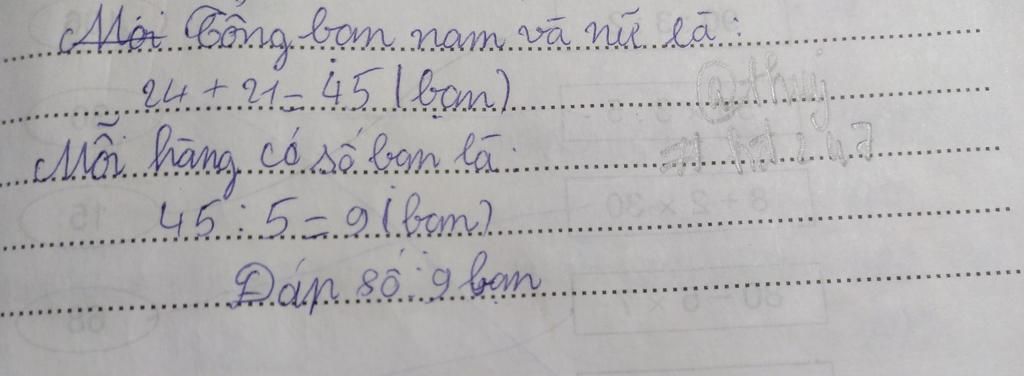 Mỗi Tổng bạn nam và nữ là:
24 + 21 = 45 (bạn)
Mỗi hàng có số bạn là:
45 : 5 = 9 (bạn)
Đáp số: 9 bạn